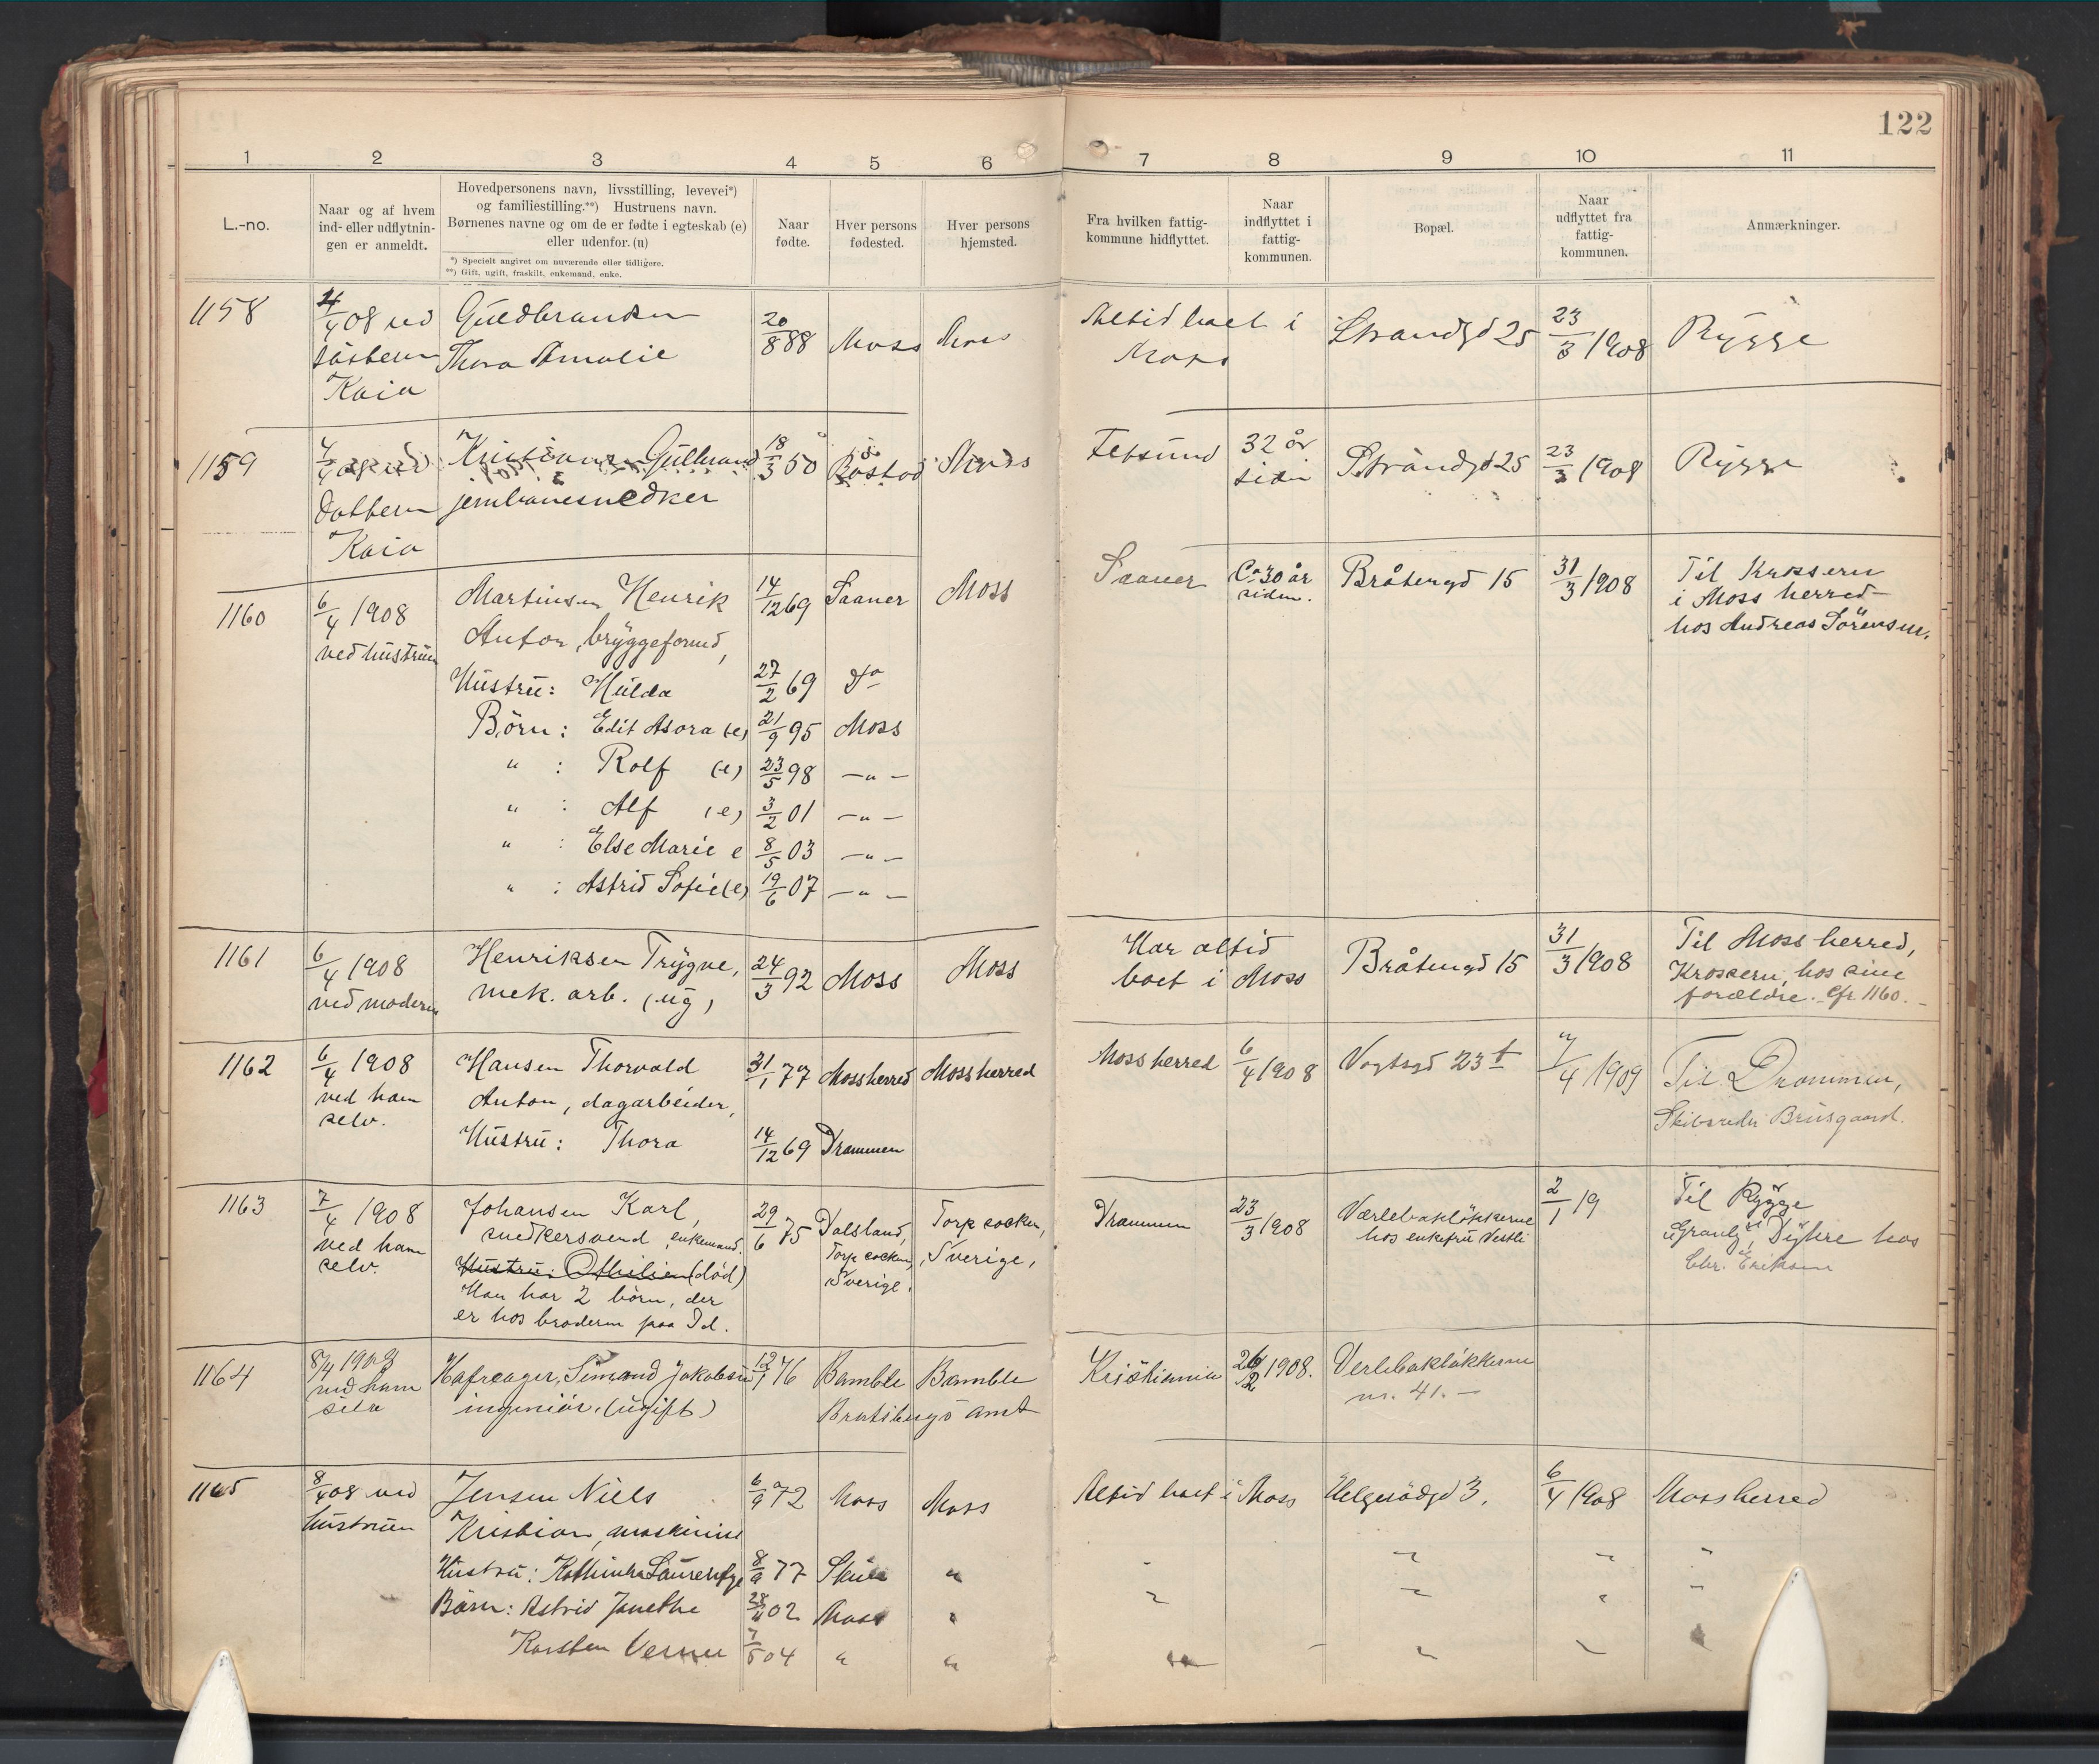 122
1 2 3 4 5 6 7 8 9 10 11
L.-no.
Naar og af hvem
ind- eller udflytnin-
gen er anmeldt.
Hovedpersonens navn, livsstilling, levevei*)
og familiestilling.**) Hustruens navn.
Børnenes navne og om de er fødte i egteskab (e)
eller udenfor. (u)
*) Specielt angivet om nuværende eller tidligere.
**) Gift, ugift, fraskilt, enkemand, enke.
Naar
fødte.
Hver persons
fødested.
Hver persons
hjemsted.
Fra hvilken fattig-
kommune hidflyttet.
Naar
indflyttet i
fattig-
kommunen.
Bopæl.
Naar
udflyttet fra
fattig-
kommunen.
Anmærkninger.
1158 4/4 08 ved Guldbrandsen 20/8 88 Moss Moss Altid boet i Strandgd 25 23/3 1908 Rygge
søsteren Thora Amalie Moss
Kaia
1159 4/4 08 ved Kristian Gulbrand 18/3 50 Båstad Moss Fetsund 32 år Strandgd 25 23/3 1908 Rygge
datteren jernbanesnedker siden
Kaia
1160 6/4 1908 Martinsen Henrik 14/12 69 Saaner Moss Saaner Ca 30 år Bråtengd 15 31/3 1908 Til Krossern
ved hustruen Anton, bryggeformd, siden. i Moss herred
hos Andreas Sörensen.
Hustru: Hulda 27/2 69 do
Börn: Edit Asora (e) 21/9 95 Moss
" : Rolf (e) 23/5 98 — " —
" : Alf (e) 3/2 01 — " —
" : Else Marie e 8/5 03 — " —
" : Astrid Sofie (e) 19/6 07 — " —
1161 6/4 1908 Henriksen Trygve, 24/3 92 Moss Moss Har altid Bråtengd 15 31/3 1908 Til Moss herred,
ved moderen mek. arb. (ug) boet i Moss Krossern, hos sine
forældre. Cfr. 1160.
1162 6/4 1908 Hansen Thorvald 31/1 77 Mossherred Mossherred Moss herred 6/4 1908 Vogtsgd 23 b 7/4 1909 Til Drammen,
ved ham Anton, dagarbeider, Skibsreder Brusgaard.
selv. Hustru: Thora 14/12 69 Drammen
1163 7/4 1908 Johansen Karl, 29/6 75 Dalsland, Torp socken, Drammen 23/3 1908 Værlebakløkkerne 2/1 19 Til Rygge
ved ham snedkersvend, enkemand. Torp socken, Sverige, hos enkefru Vestli Granly, Dyhre hos
selv. Hustru: Othilien (död) Sverige. Chr. Eriksen
Han har 2 börn, der
er hos broderen paa Id.
1164 8/4 1908 Hafreager, Simond Jakobsen 12/1 76 Bamble Bamble Kristiania 26/2 1908. Verlebakløkkerne
ved ham ingeniör. (ugift) Bratsbergs amt nr. 41. —
selv
1165 8/4 08 ved Jensen Niels 6/9 72 Moss Moss Altid boet i Moss Helgerödgd 3. 6/4 1908 Mossherred
hustruen Kristian, maskinist
Hustru: Kathinka Laurentze 8/9 77 "
Börn: Astrid Janethe 02 Moss "
Karsten Verner 04 " "